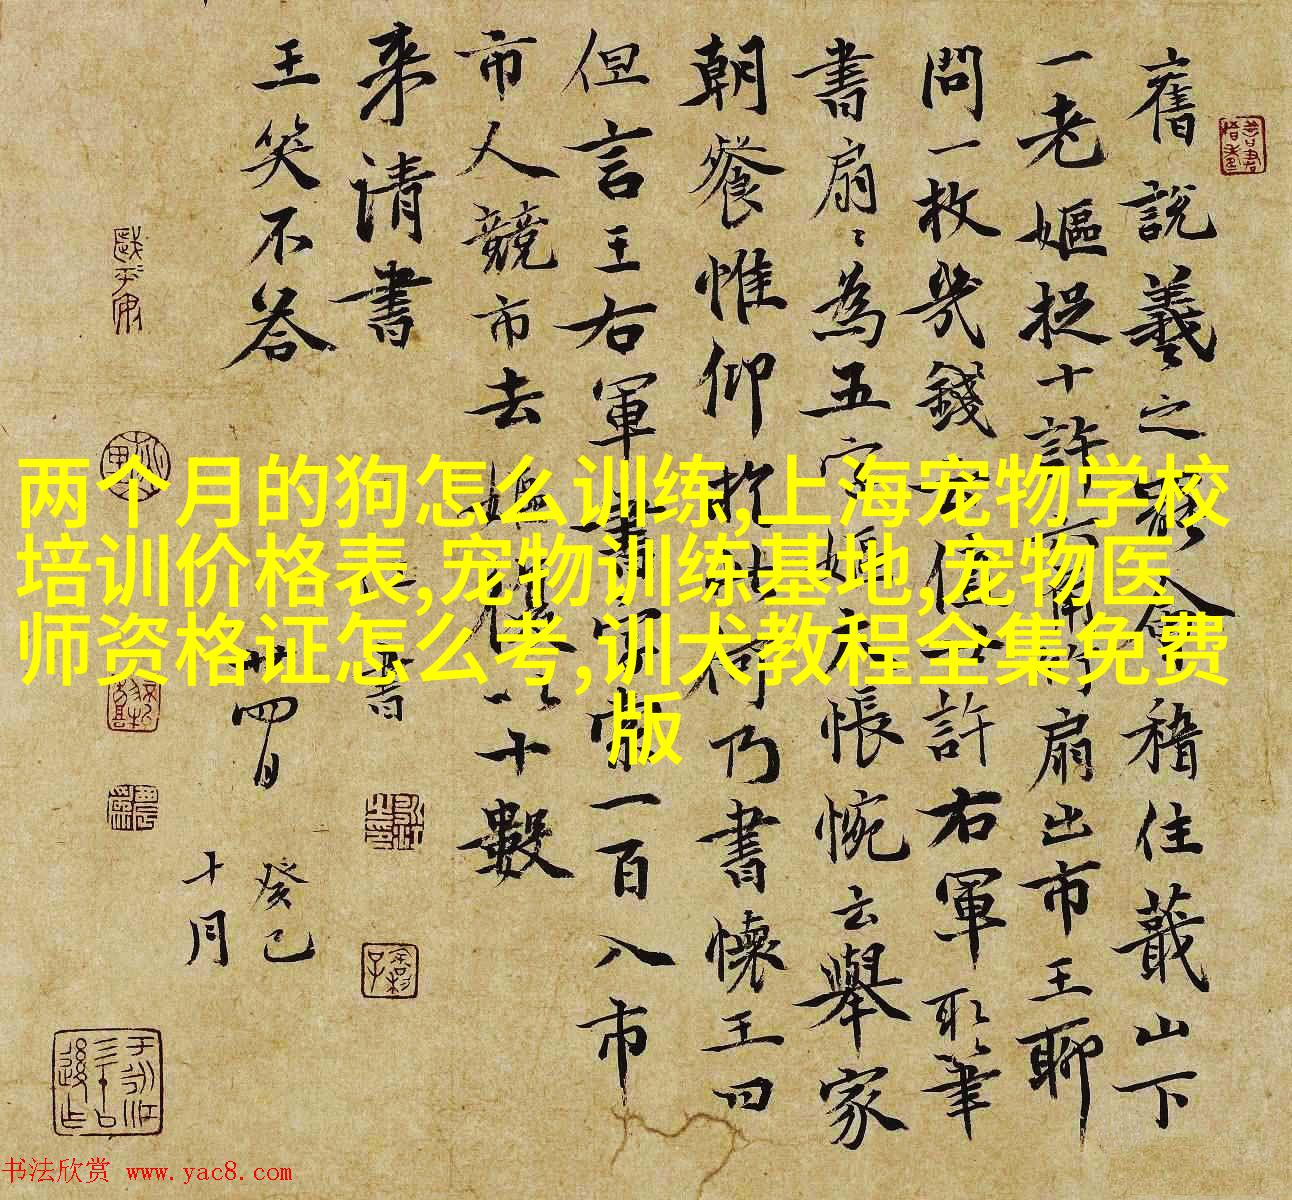 舊說羲之罷會稽住蕺山下
一老嫗捉十許六角竹扇出市王聊
問一枚幾錢云值廿許右軍取筆
書扇〻為五字嫗大悵惋云舉家
朝餐惟仰於此何乃書壞王曰
但言王右軍書字索一百入市
市人競市去嫗復以十數
来請書
王笑不答
廿四日
癸巳
十月
两个月的狗怎么训练,上海宠物学校
培训价格表,宠物训练基地,宠物医
师资格证怎么考,训犬教程全集免费
版
书法欣赏 www.yac8.com